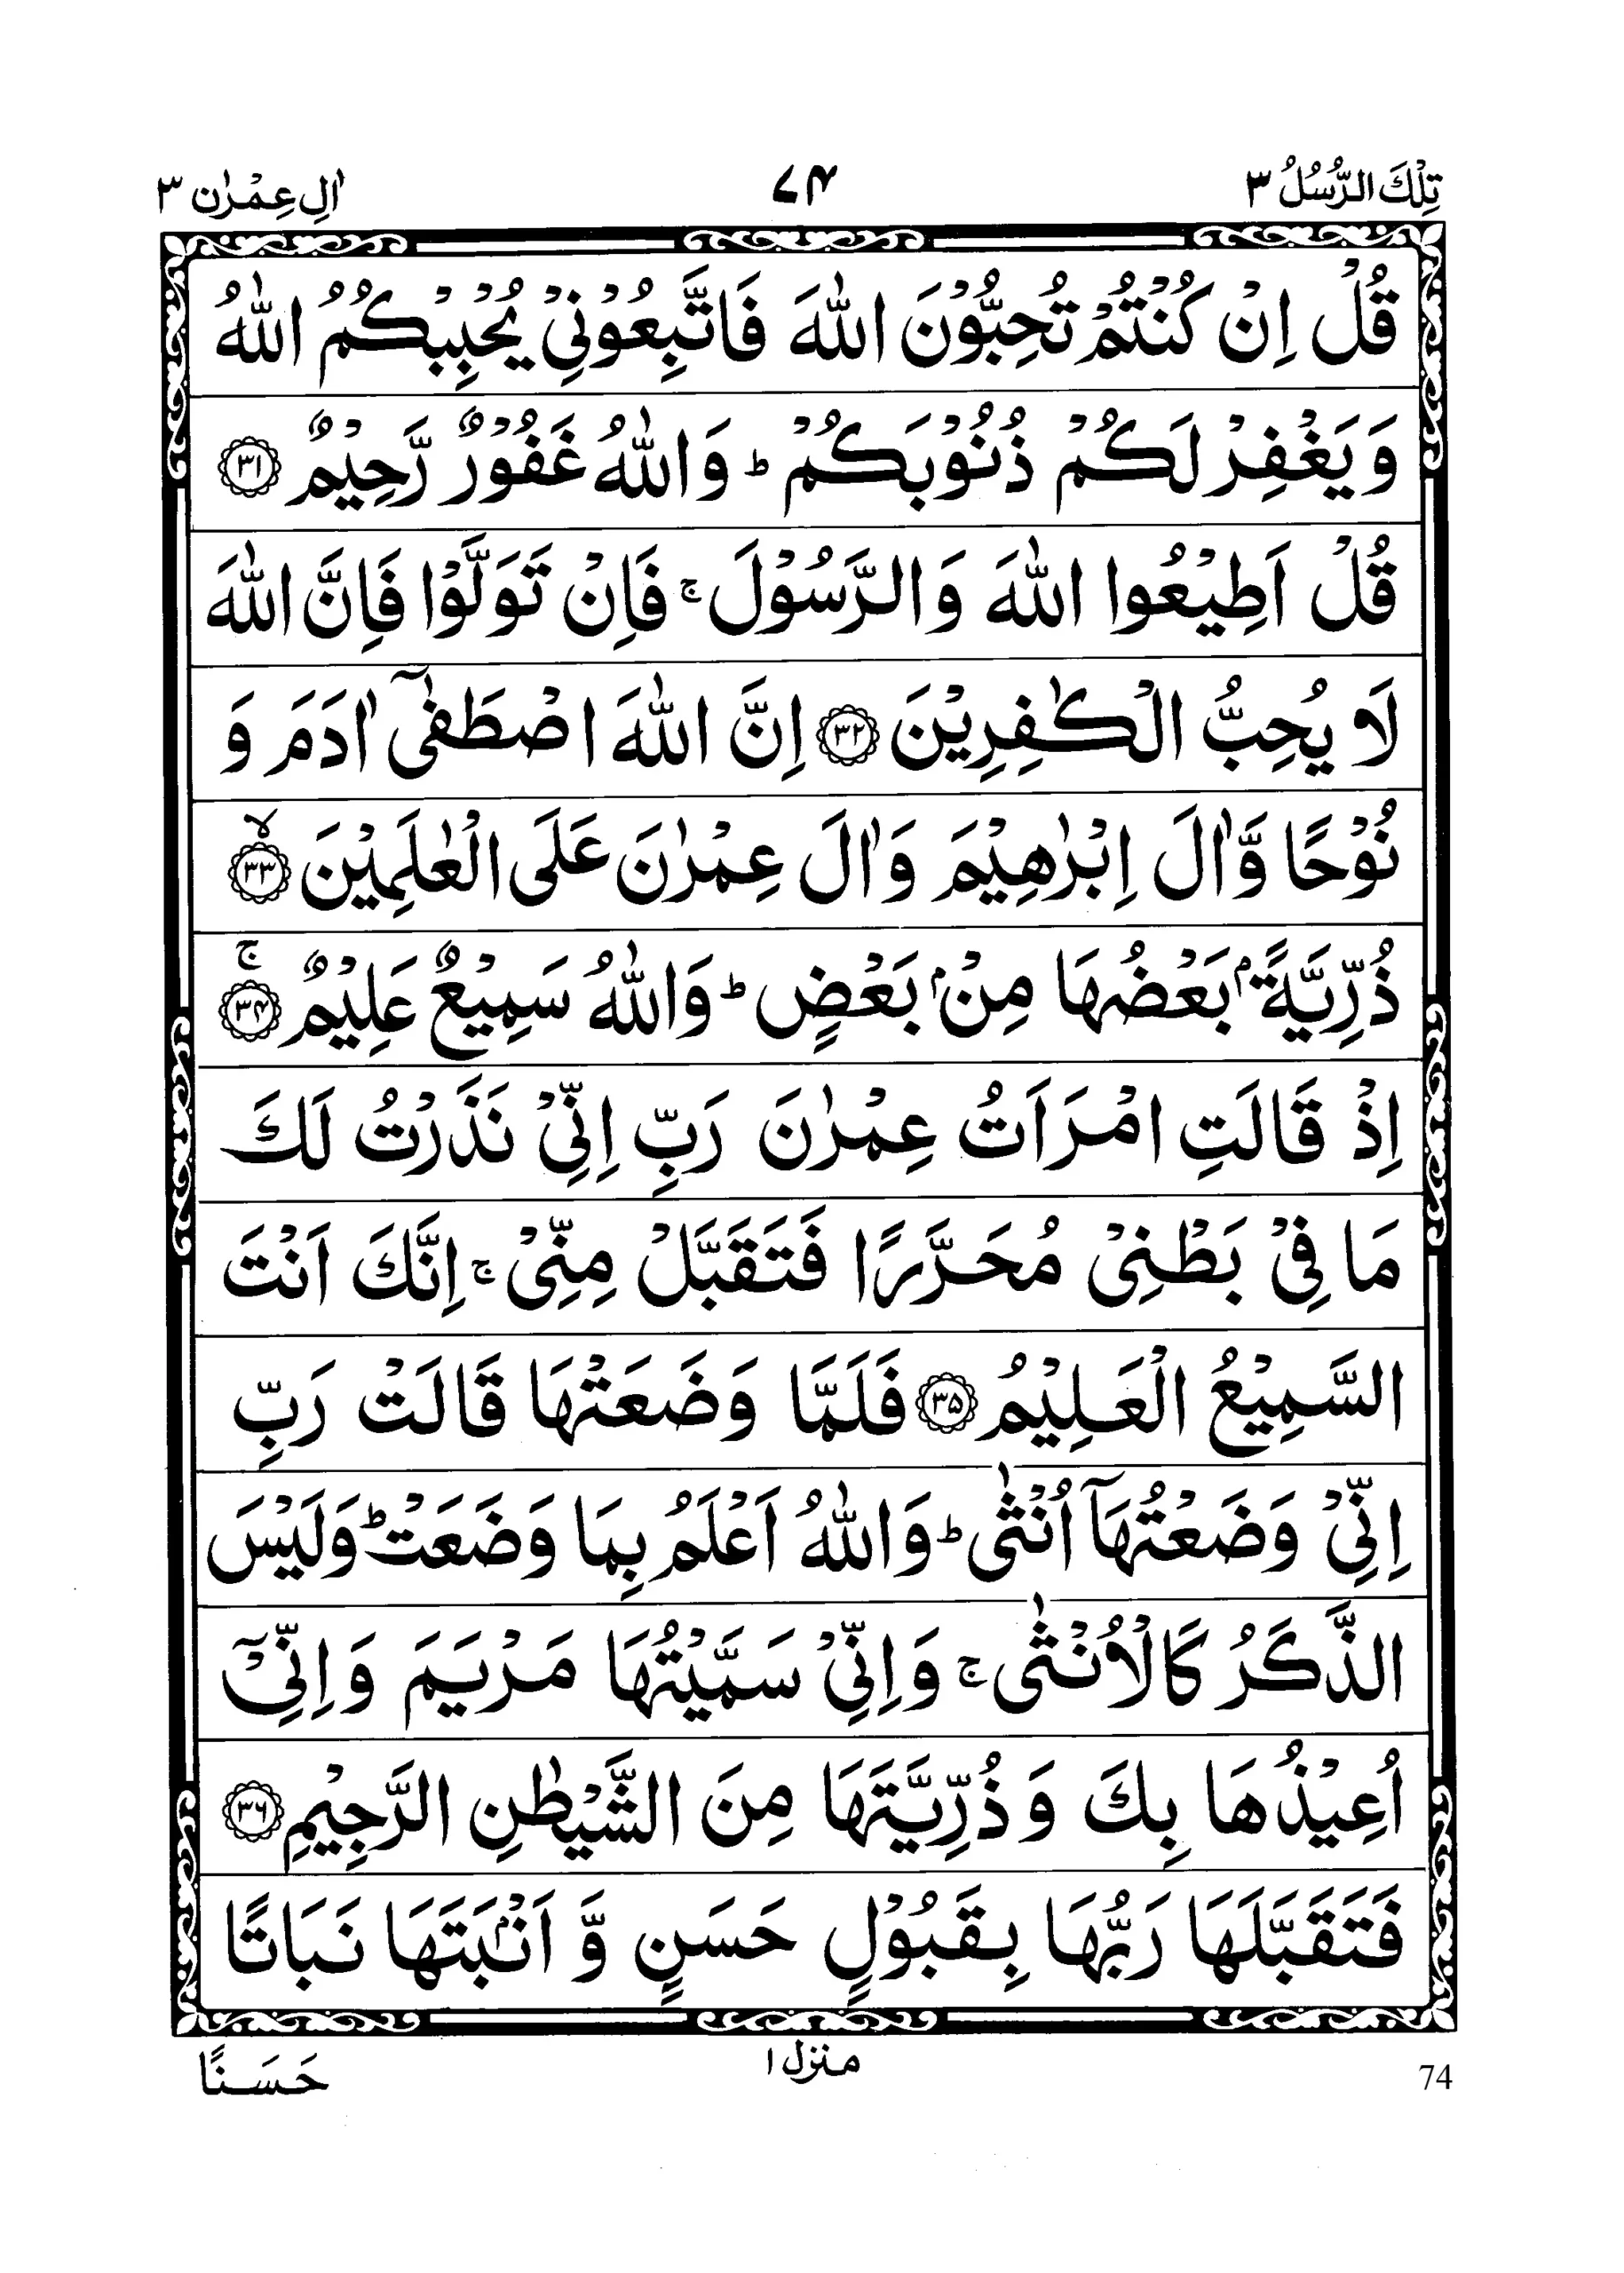 تِلْكَ الرُّسُلُ ٣
٧۴
اٰلِ عِمْرٰن ٣
قُلْ اِنْ كُنْتُمْ تُحِبُّوْنَ اللّٰهَ فَاتَّبِعُوْنِيْ يُحْبِبْكُمُ اللّٰهُ
وَيَغْفِرْ لَكُمْ ذُنُوْبَكُمْ ؕ وَاللّٰهُ غَفُوْرٌ رَّحِيْمٌ ۝٣١
قُلْ اَطِيْعُوا اللّٰهَ وَالرَّسُوْلَ ۚ فَاِنْ تَوَلَّوْا فَاِنَّ اللّٰهَ
لَا يُحِبُّ الْكٰفِرِيْنَ ۝٣٢ اِنَّ اللّٰهَ اصْطَفٰىٓ اٰدَمَ وَ
نُوْحًا وَّاٰلَ اِبْرٰهِيْمَ وَاٰلَ عِمْرٰنَ عَلَى الْعٰلَمِيْنَ ۙ۝٣٣
ذُرِّيَّةًۢ بَعْضُهَا مِنْۢ بَعْضٍ ؕ وَاللّٰهُ سَمِيْعٌ عَلِيْمٌ ۚ۝٣۴
اِذْ قَالَتِ امْرَاَتُ عِمْرٰنَ رَبِّ اِنِّىْ نَذَرْتُ لَكَ
مَا فِىْ بَطْنِىْ مُحَرَّرًا فَتَقَبَّلْ مِنِّىْ ۚ اِنَّكَ اَنْتَ
السَّمِيْعُ الْعَلِيْمُ ۝٣۵ فَلَمَّا وَضَعَتْهَا قَالَتْ رَبِّ
اِنِّىْ وَضَعْتُهَاۤ اُنْثٰى ؕ وَاللّٰهُ اَعْلَمُ بِمَا وَضَعَتْ ؕ وَلَيْسَ
الذَّكَرُ كَالْاُنْثٰى ۚ وَاِنِّىْ سَمَّيْتُهَا مَرْيَمَ وَاِنِّىْۤ
اُعِيْذُهَا بِكَ وَذُرِّيَّتَهَا مِنَ الشَّيْطٰنِ الرَّجِيْمِ ۝٣۶
فَتَقَبَّلَهَا رَبُّهَا بِقَبُوْلٍ حَسَنٍ وَّاَنْۢبَتَهَا نَبَاتًا
74
منزل ١
حَسَنًا